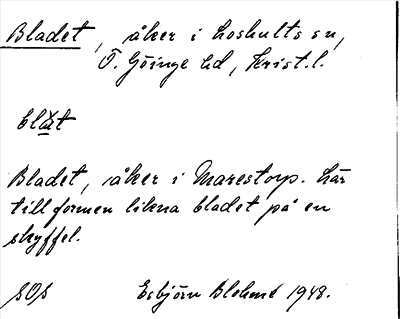 Bladet, åker i Loshults sn,
Ö. Göinge hd, Krist. l.
Bladet, åker i Marestorp. Lär
till formen likna bladet på en
skyffel.
SOS Esbjörn Blohmé 1948.